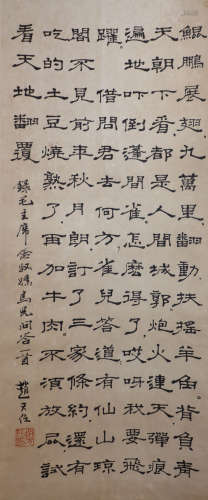 鯤鵬展翅九萬里翻動扶搖羊角背負青
天朝下看都是人間城郭炮火連天彈痕
遍地吓倒蓬間雀怎麼得了哎呀我要飛
躍借問君去何方雀兒答道有仙山瓊
閣不見前年秋月朗訂了三家條約還有
吃的土豆燒熟了再加牛肉不須放屁試
看天地翻覆
錄毛主席念奴嬌鳥兒問答一首 趙